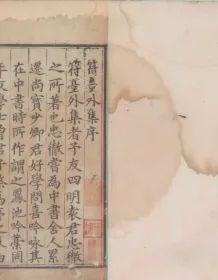 符臺外集序
符臺外集者予友四明袁君忠徹
之所著也忠徹嘗為中書舍人累
遷尚寶少卿君好學問喜吟咏其
在中書時所作謂之鳳池吟藁同